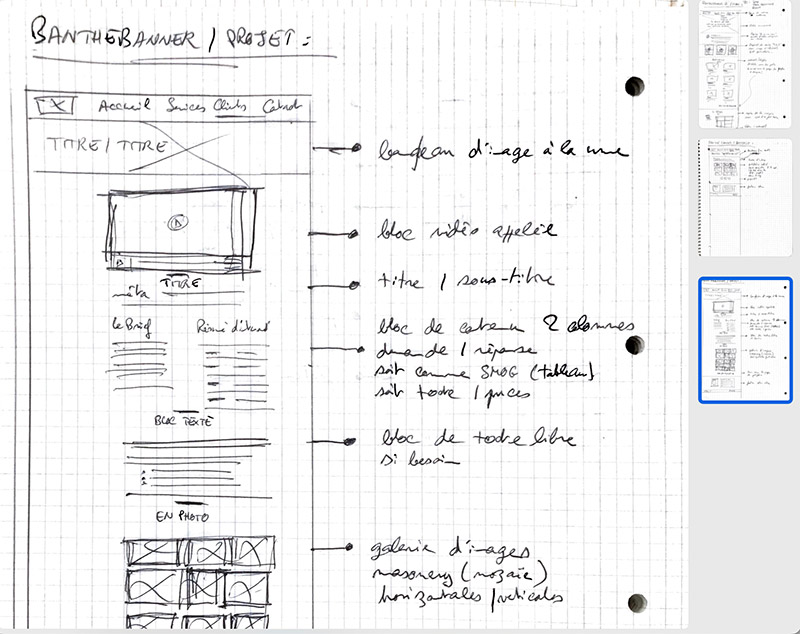 BANTHEBANNER / PROJET :
Accueil Services Clients Contact
TITRE / TITRE
bandeau d'image à la une
bloc vidéo appelée
TITRE
titre / sous-titre
méta
le Brief
Résumé
bloc de contenu 2 colonnes
demande / réponse
soit comme SMOG (tableau)
soit texte / puces
BLOC TEXTE
bloc de texte libre
si besoin
EN PHOTO
galerie d'images
masonery (mozaïc)
horizontales / verticales